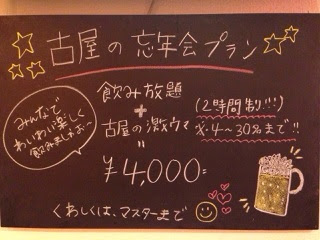 古屋の忘年会プラン
みんなで
わいわい楽しく
飲みましょお〜
飲み放題
+
古屋の激ウマ
=
¥4,000-
(2時間制!!!)
※4〜30名まで!!
くわしくは、マスターまで